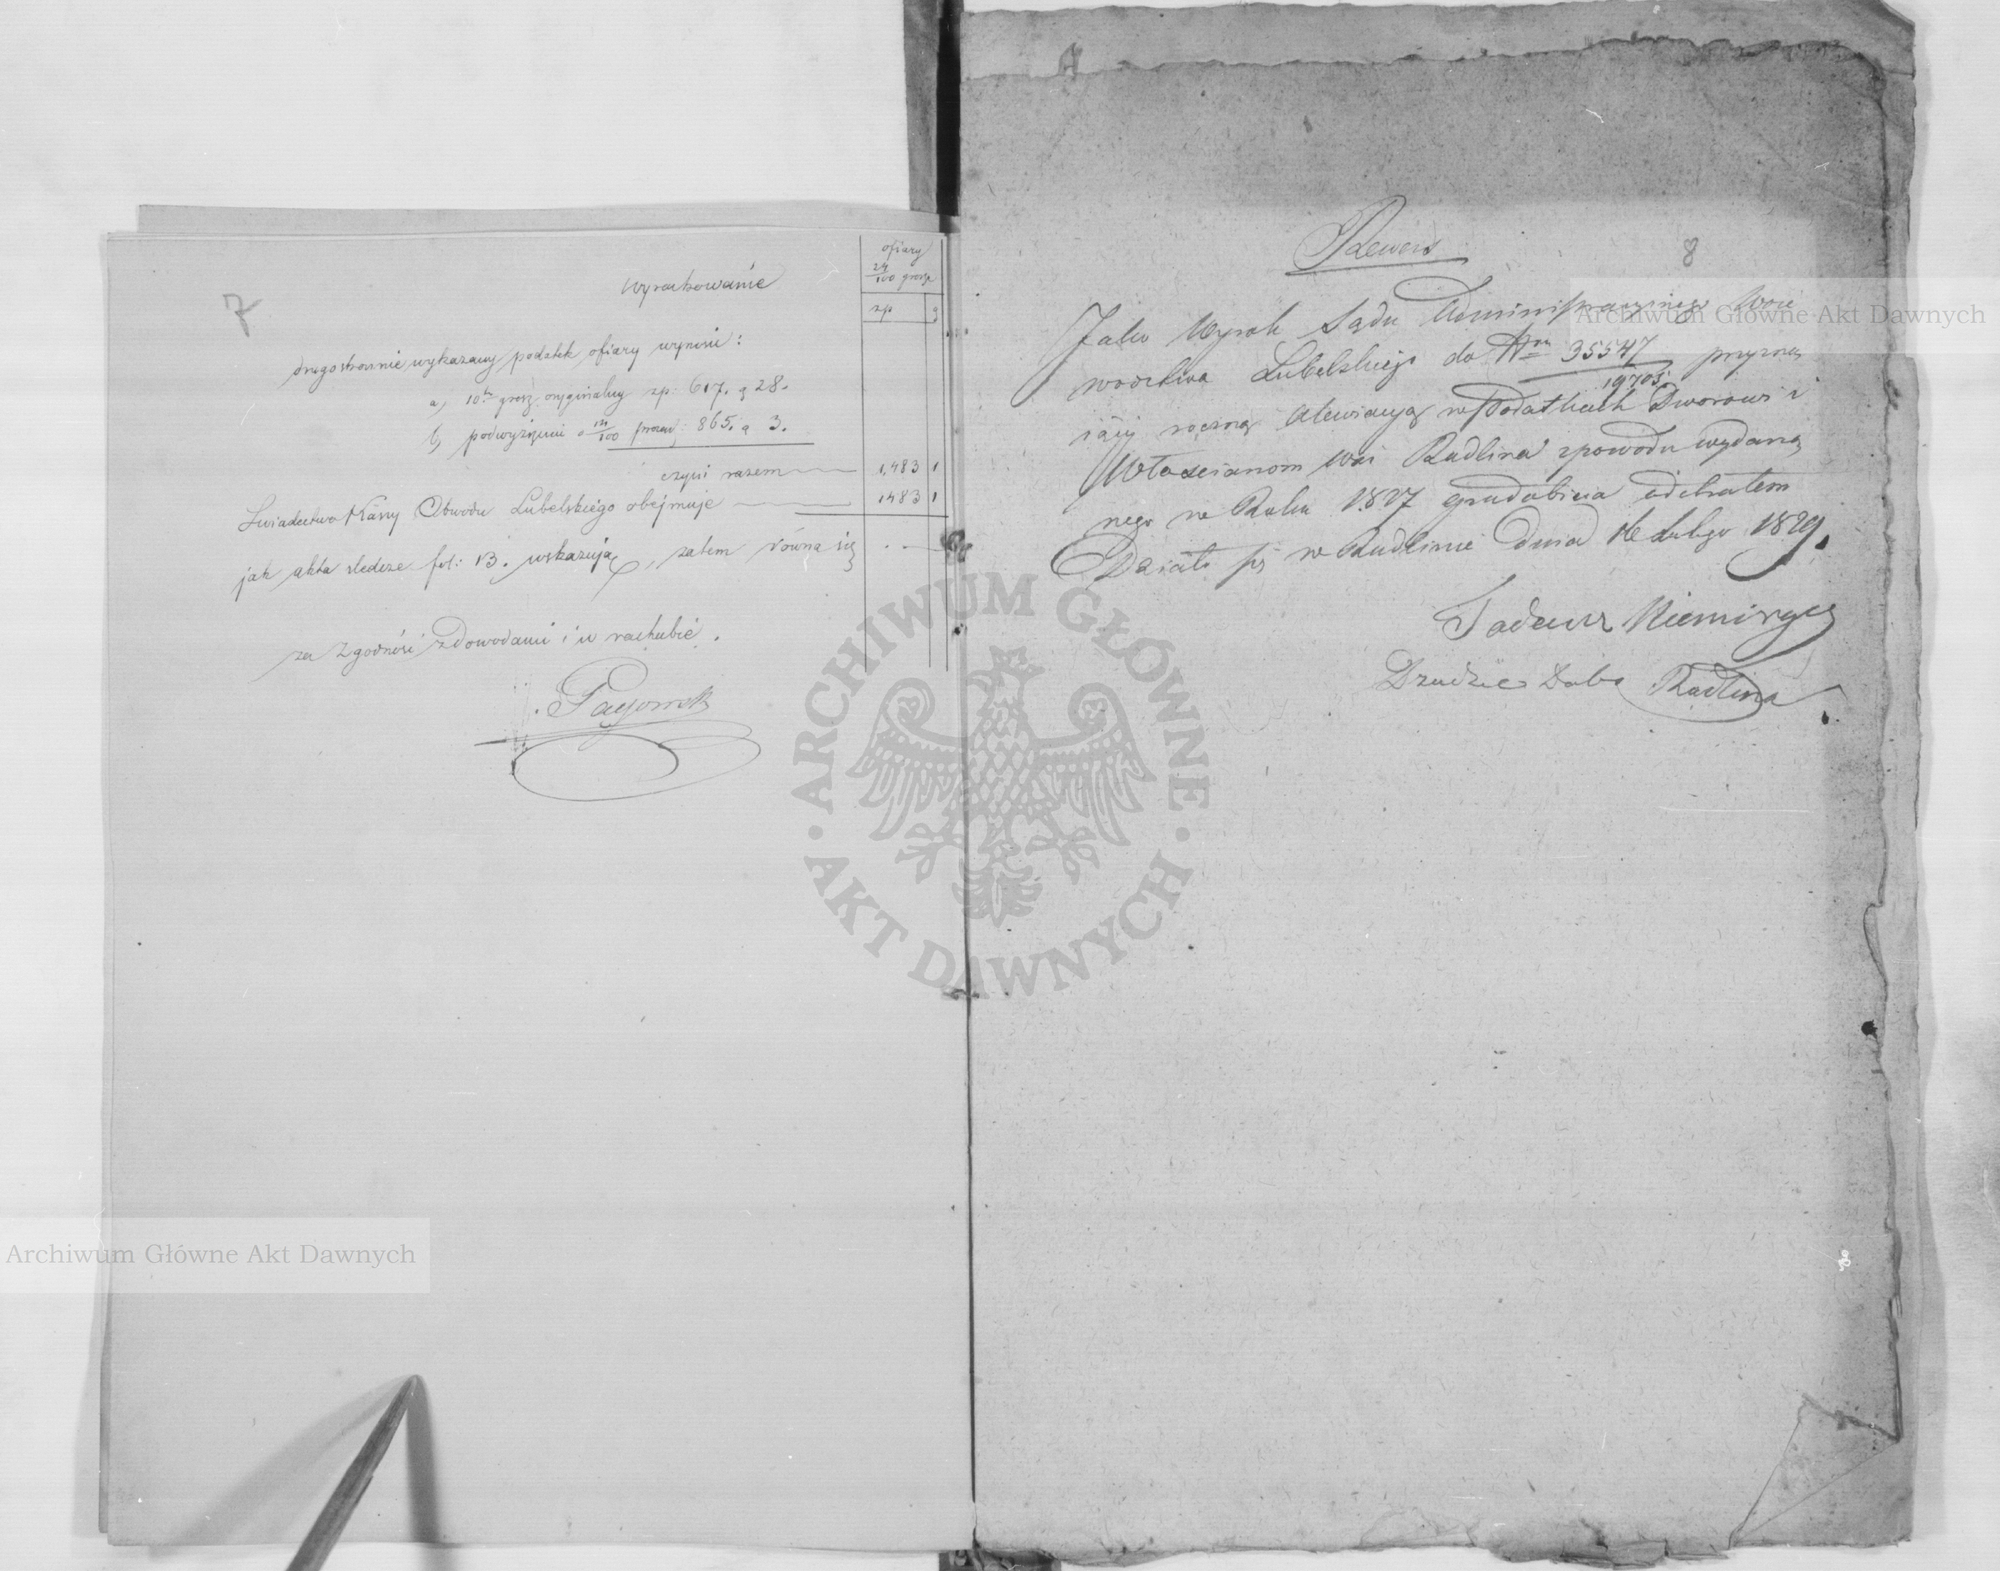 7
Wyrachowanie
ofiary
24/100 grosz
zp g
drugostronnie wykazany podatek ofiary wynosi:
a, 10ty grosz oryginalny zp: 617. g 28.
b, podwyższenie 14/100 : 865. g 3.
czyni razem 1,483 1
Swiadectwo Kassy Obwodu Lubelskiego obejmuje 1483 1
jak akta śledcze fol: 13. wskazują, zatem równa się . . —
za Zgodność z Dowodami i w rachubie.
8
Rewers
Jako Wyrok Sądu Administracyinego Woie
wodztwa Lubelskiego do Nru 35547/19703: przyzna
iący roczną Alewiacyą w Podatkach Dworowi i
Włoscianom wsi Radlina z powodu wydarzo
nego w Roku 1827 gradobicia odebrałem
Działo się w Radlinie Dnia 16 Lutego 1829.
Tadeusz Niemirycz
Dziedzic Dobr Radlina
ARCHIWUM GŁÓWNE AKT DAWNYCH
Archiwum Główne Akt Dawnych
Archiwum Główne Akt Dawnych